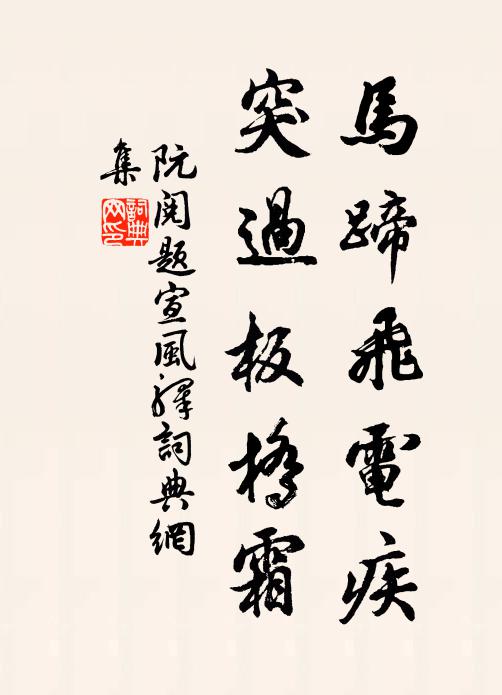 馬蹄飛電疾
突過板橋霜
阮閱題宣風驛詞典網
集
詞典網印